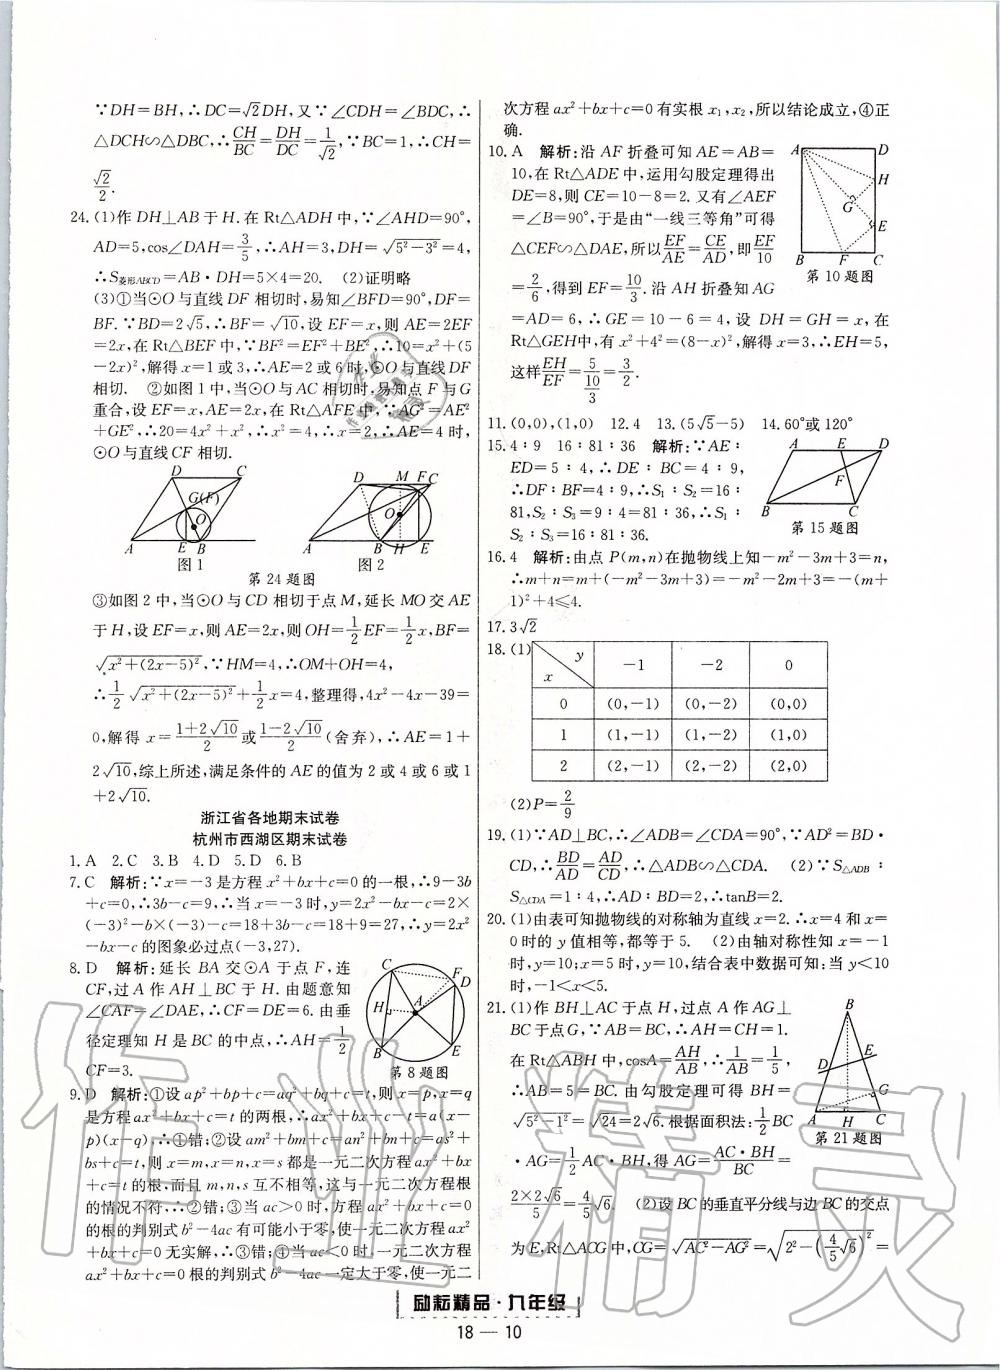 ∵DH=BH,∴DC=√2DH,又∵∠CDH=∠BDC,∴
△DCH∽△DBC,∴CH/BC=DH/DC=1/√2,∵BC=1,∴CH=
√2/2.
24.(1)作DH⊥AB于H.在Rt△ADH中,∵∠AHD=90°,
AD=5,cos∠DAH=3/5,∴AH=3,DH=√(5²-3²)=4,
∴S菱形ABCD=AB·DH=5×4=20. (2)证明略
(3)①当⊙O与直线DF相切时,易知∠BFD=90°,DF=
BF.∵BD=2√5,∴BF=√10,设EF=x,则AE=2EF
=2x,在Rt△BEF中,∵BF²=EF²+BE²,∴10=x²+(5
-2x)²,解得x=1或3,∴AE=2或6时,⊙O与直线DF
相切. ②如图1中,当⊙O与AC相切时,易知点F与G
重合,设EF=x,AE=2x,在Rt△AFE中,∵AG²=AE²
+GE²,∴20=4x²+x²,∴x²=4,∴x=2,∴AE=4时,
⊙O与直线CF相切.
D C G(F) O A E B
图1
D M F C O A B H E
图2
第24题图
③如图2中,当⊙O与CD相切于点M,延长MO交AE
于H,设EF=x,则AE=2x,则OH=1/2EF=1/2x,BF=
√(x²+(2x-5)²),∵HM=4,∴OM+OH=4,
∴1/2√(x²+(2x-5)²)+1/2x=4,整理得,4x²-4x-39=
0,解得x=(1+2√10)/2或(1-2√10)/2(舍弃),∴AE=1+
2√10,综上所述,满足条件的AE的值为2或4或6或1
+2√10.
浙江省各地期末试卷
杭州市西湖区期末试卷
1.A 2.C 3.B 4.D 5.D 6.B
7.C 解析:∵x=-3是方程x²+bx+c=0的一根,∴9-3b
+c=0,∴3b-c=9,∴当x=-3时,y=2x²-bx-c=2×
(-3)²-b×(-3)-c=18+3b-c=18+9=27,∴y=2x²
-bx-c的图象必过点(-3,27).
8.D 解析:延长BA交⊙A于点F,连
CF,过A作AH⊥BC于H.由题意知
∠CAF=∠DAE,∴CF=DE=6.由垂
径定理知H是BC的中点,∴AH=1/2
CF=3.
C F D H A B E
第8题图
9.D 解析:①设ap²+bp+c=aq²+bq+c=t,则x=p,x=q
是方程ax²+bx+c=t的两根,∴ax²+bx+c-t=a(x-
p)(x-q),∴①错;②设am²+bm+c=an²+bn+c=as²+
bs+c=t,则x=m,x=n,x=s都是一元二次方程ax²+bx
+c=t的根,而且m,n,s互不相等,这与一元二次方程根
的情况不符,∴②错;③当ac>0时,方程ax²+bx+c=0
的根的判别式b²-4ac有可能小于零,使一元二次方程ax²
+bx+c=0无实解,∴③错;④当ac<0时,一元二次方程
ax²+bx+c=0根的判别式b²-4ac一定大于零,使一元二
次方程ax²+bx+c=0有实根x₁,x₂,所以结论成立,④正
确.
10.A 解析:沿AF折叠可知AE=AB=
10,在Rt△ADE中,运用勾股定理得出
DE=8,则CE=10-8=2.又有∠AEF
=∠B=90°,于是由“一线三等角”可得
△CEF∽△DAE,所以EF/AE=CE/AD,即EF/10
=2/6,得到EF=10/3.沿AH折叠知AG
=AD=6,∴GE=10-6=4,设DH=GH=x,在
Rt△GEH中,有x²+4²=(8-x)²,解得x=3,∴EH=5,
这样EH/EF=5/(10/3)=3/2.
A D H G E B F C
第10题图
11.(0,0),(1,0) 12.4 13.(5√5-5) 14.60°或120°
15.4∶9 16∶81∶36 解析:∵AE∶
ED=5∶4,∴DE∶BC=4∶9,
∴DF∶BF=4∶9,∴S₁∶S₂=16∶
81,S₂∶S₃=9∶4=81∶36,∴S₁∶
S₂∶S₃=16∶81∶36.
A E D F B C
第15题图
16.4 解析:由点P(m,n)在抛物线上知-m²-3m+3=n,
∴m+n=m+(-m²-3m+3)=-m²-2m+3=-(m+
1)²+4≤4.
17.3√2
18.(1)
x y -1 -2 0
0 (0,-1) (0,-2) (0,0)
1 (1,-1) (1,-2) (1,0)
2 (2,-1) (2,-2) (2,0)
(2)P=2/9
19.(1)∵AD⊥BC,∴∠ADB=∠CDA=90°,∵AD²=BD·
CD,∴BD/AD=AD/CD,∴△ADB∽△CDA. (2)∵S△ADB∶
S△CDA=1∶4,∴AD∶BD=2,∴tanB=2.
20.(1)由表可知抛物线的对称轴为直线x=2.∴x=4和x=
0时的y值相等,都等于5. (2)由轴对称性知x=-1
时,y=10;x=5时,y=10,结合表中数据可知:当y<10
时,-1<x<5.
21.(1)作BH⊥AC于点H,过点A作AG⊥
BC于点G,∵AB=BC,∴AH=CH=1.
在Rt△ABH中,cosA=AH/AB,∴1/AB=1/5,
∴AB=5=BC.由勾股定理可得BH=
√(5²-1²)=√24=2√6.根据面积法:1/2BC
·AG=1/2AC·BH,得AG=AC·BH/BC=
2×2√6/5=4/5√6. (2)设BC的垂直平分线与边BC的交点
为E,Rt△ACG中,CG=√(AC²-AG²)=√(2²-(4/5√6)²)=
B E D G A H C
第21题图
励耘精品·九年级
18 — 10
作业精灵